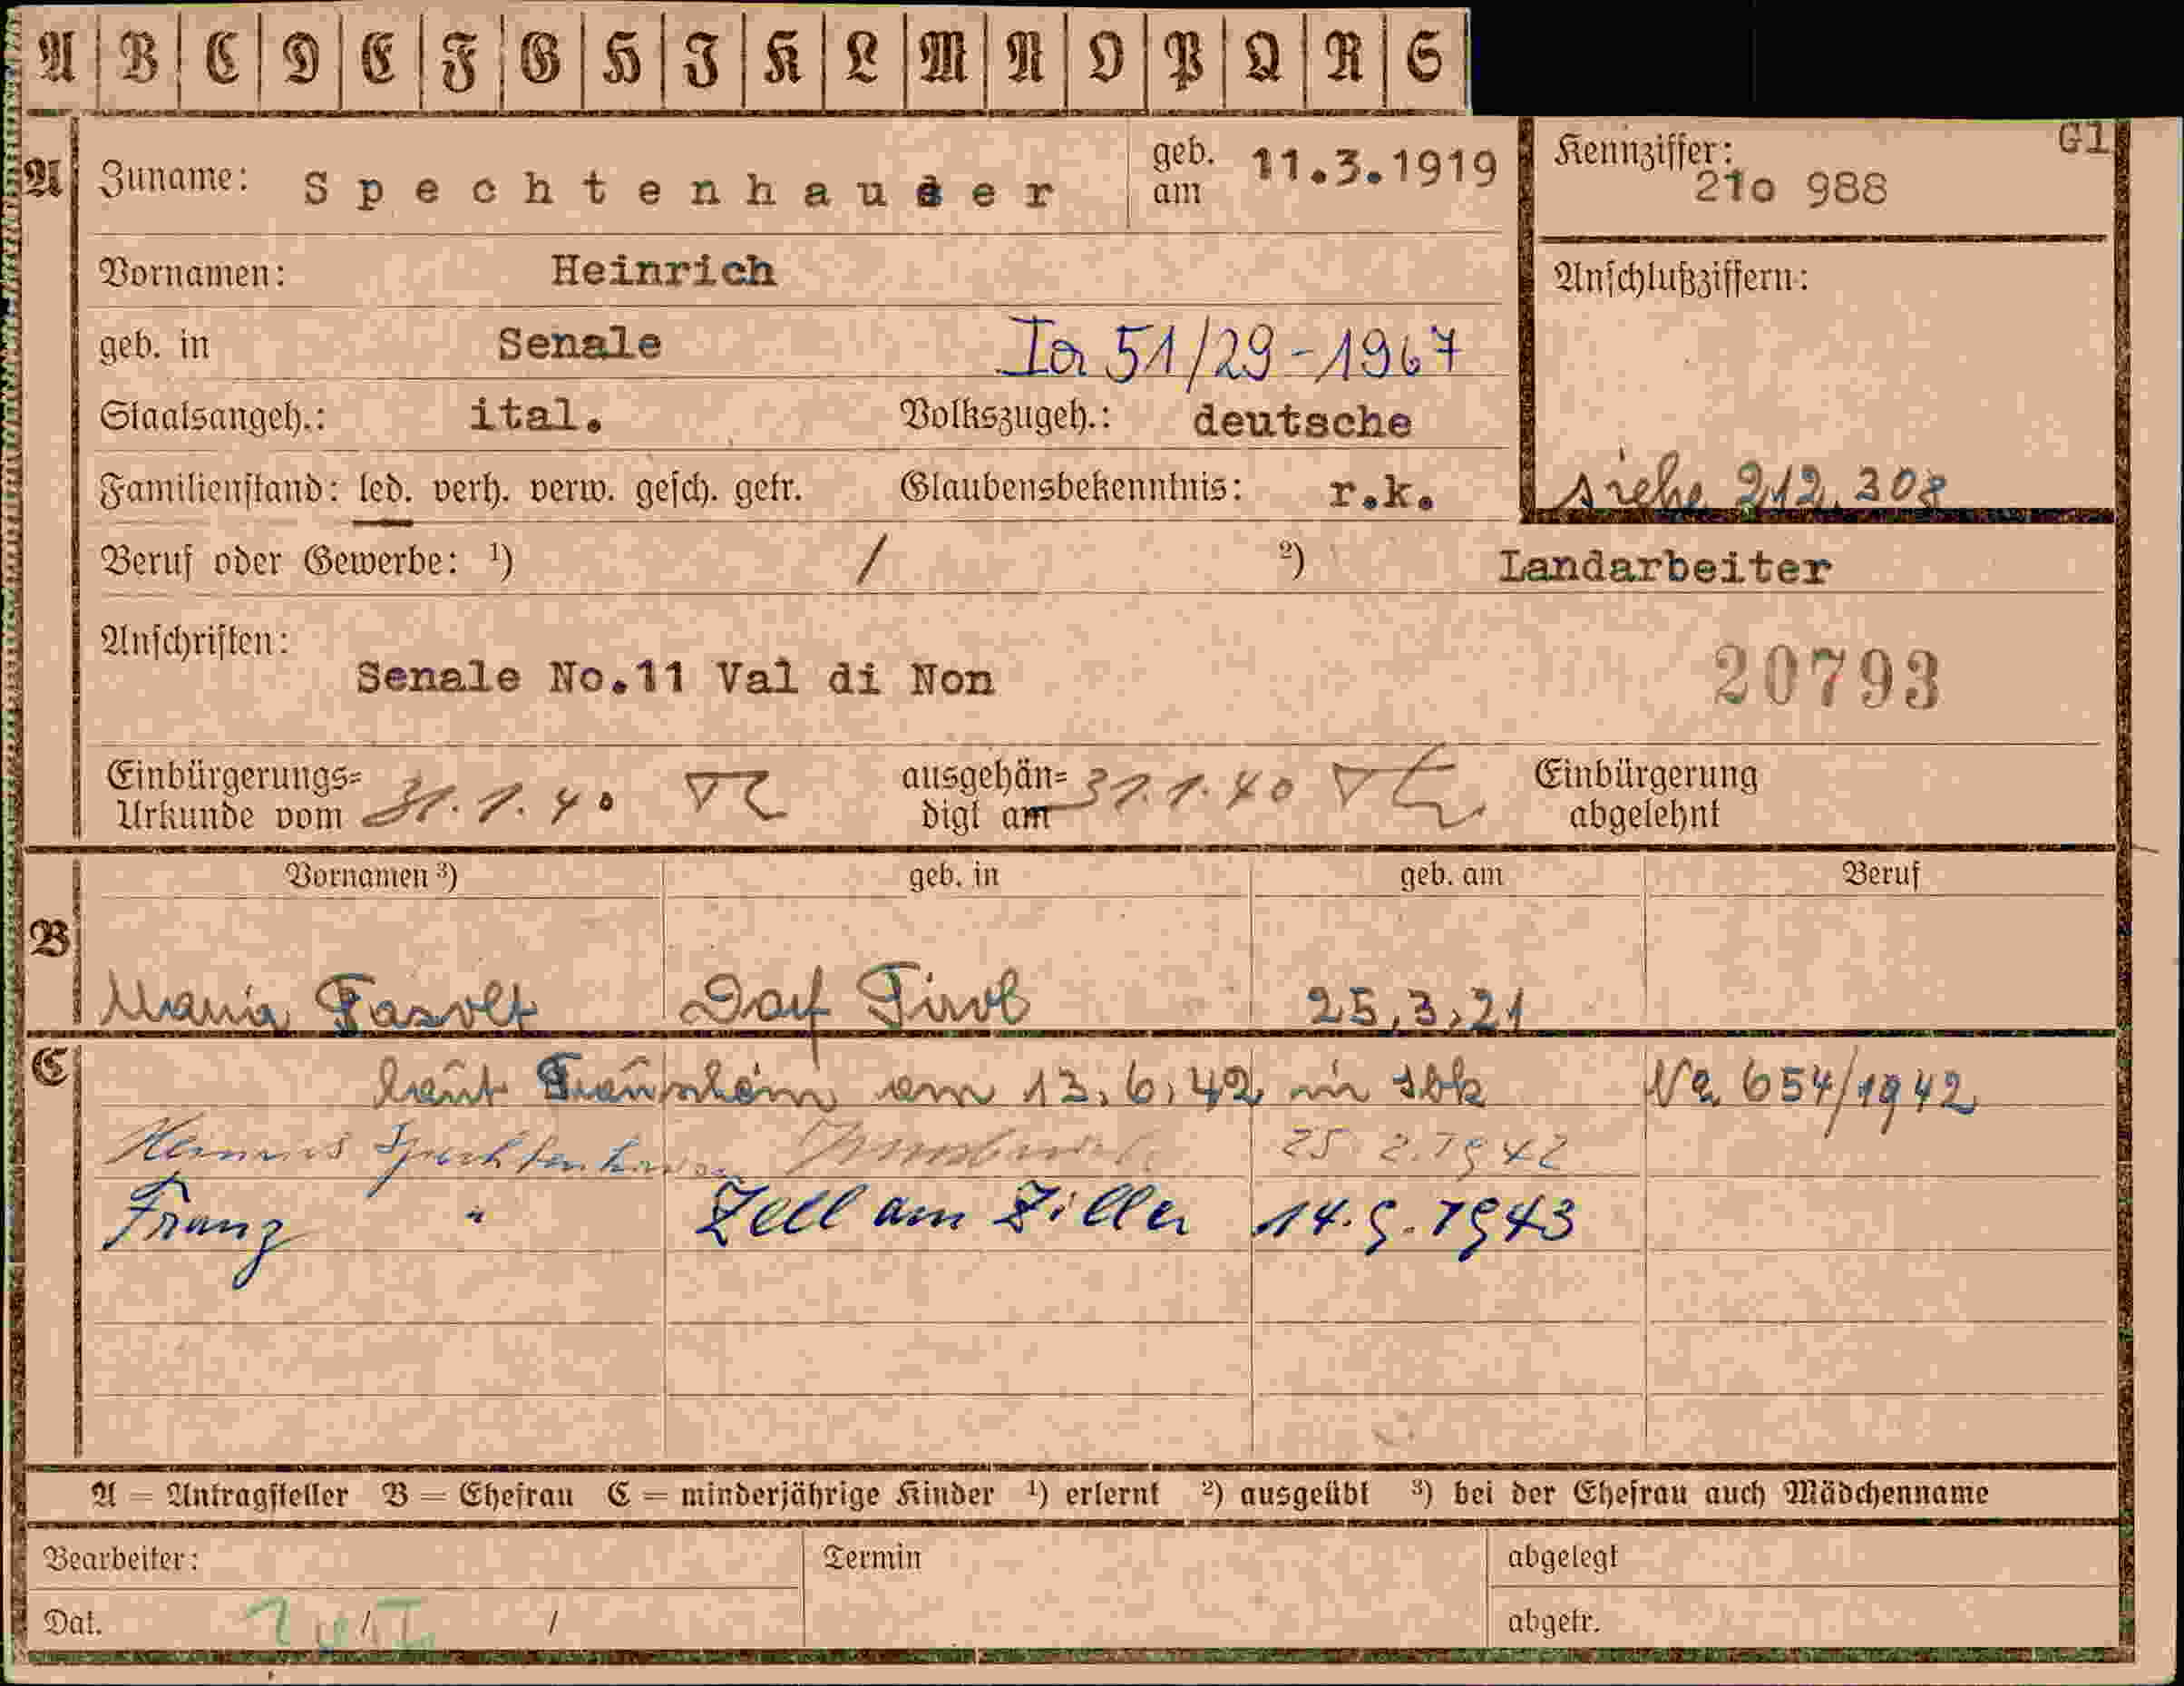 A B C D E F G H I K L M N O P Q R S
G1
A Zuname: Spechtenhauser geb. am 11.3.1919 Kennziffer: 21o 988
Vornamen: Heinrich Anschlußziffern:
geb. in Senale Ia 51/29-1967
Staatsangeh.: ital. Volkszugeh.: deutsche
Familienstand: led. verh. verw. gesch. getr. Glaubensbekenntnis: r.k. siehe 212.308
Beruf oder Gewerbe: ¹) / ²) Landarbeiter
Anschriften:
Senale No.11 Val di Non 20793
Einbürgerungs= Urkunde vom 31.1.40 ausgehän= digt am 31.1.40 Einbürgerung abgelehnt
Vornamen ³) geb. in geb. am Beruf
B Maria Fasolt Tirol 25.3.21
C laut am 13.6.42 in Ibk 654/1942
Spechtenhauser 25 2.1942
Franz " Zell am Ziller 14.9.1943
A = Antragsteller B = Ehefrau C = minderjährige Kinder ¹) erlernt ²) ausgeübt ³) bei der Ehefrau auch Mädchenname
Bearbeiter: Termin abgelegt
Dat. / / abgetr.